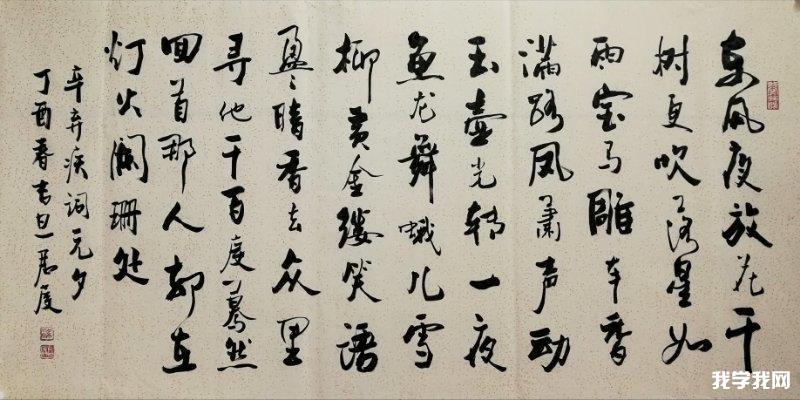 东风夜放花千
树更吹落星如
雨宝马雕车香
满路凤箫声动
玉壶光转一夜
鱼龙舞蛾儿雪
柳黄金缕笑语
盈〻暗香去众里
寻他千百度蓦然
回首那人却在
灯火阑珊处
辛弃疾词元夕
丁酉春吉旦
我学我网